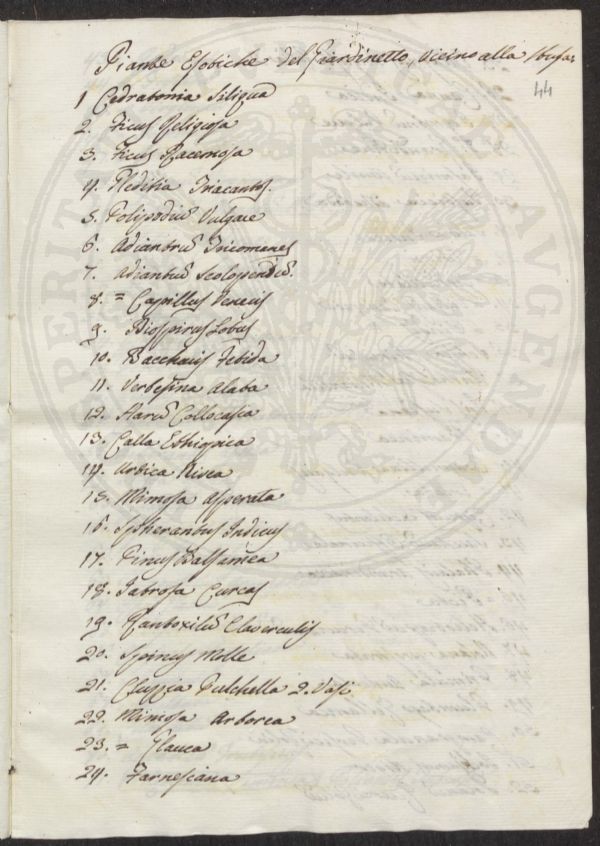 Piante Esotiche del Giardinetto, vicino alla stufa.
44
1 Cedratonia Siliqua
2. Ficus Religiosa
3. Ficus Racemosa
4. Gleditia Inacantos.
5. Polipodiū Vulgare
6. Adiantrū Tricomanes
7. Adiantū Scolopendiū.
8. = Capillus Veneris
9. Diospirus Lotus
10. Baccharis Fetida
11. Verbesina Alata
12. Harū Collocasia
13. Calla Ethiopica
14. Urtica Nivea
15. Mimosa Asperata
16. Spherantus Indicus
17. Pinus Balsamea
18. Jatrofa Curcas
19. Zantoxilū Claverculis
20. Spinus Molle
21. Cluzzia Pulchella 2. Vasi
22. Mimosa Arborea
23. = Glauca
24. Farnesiana